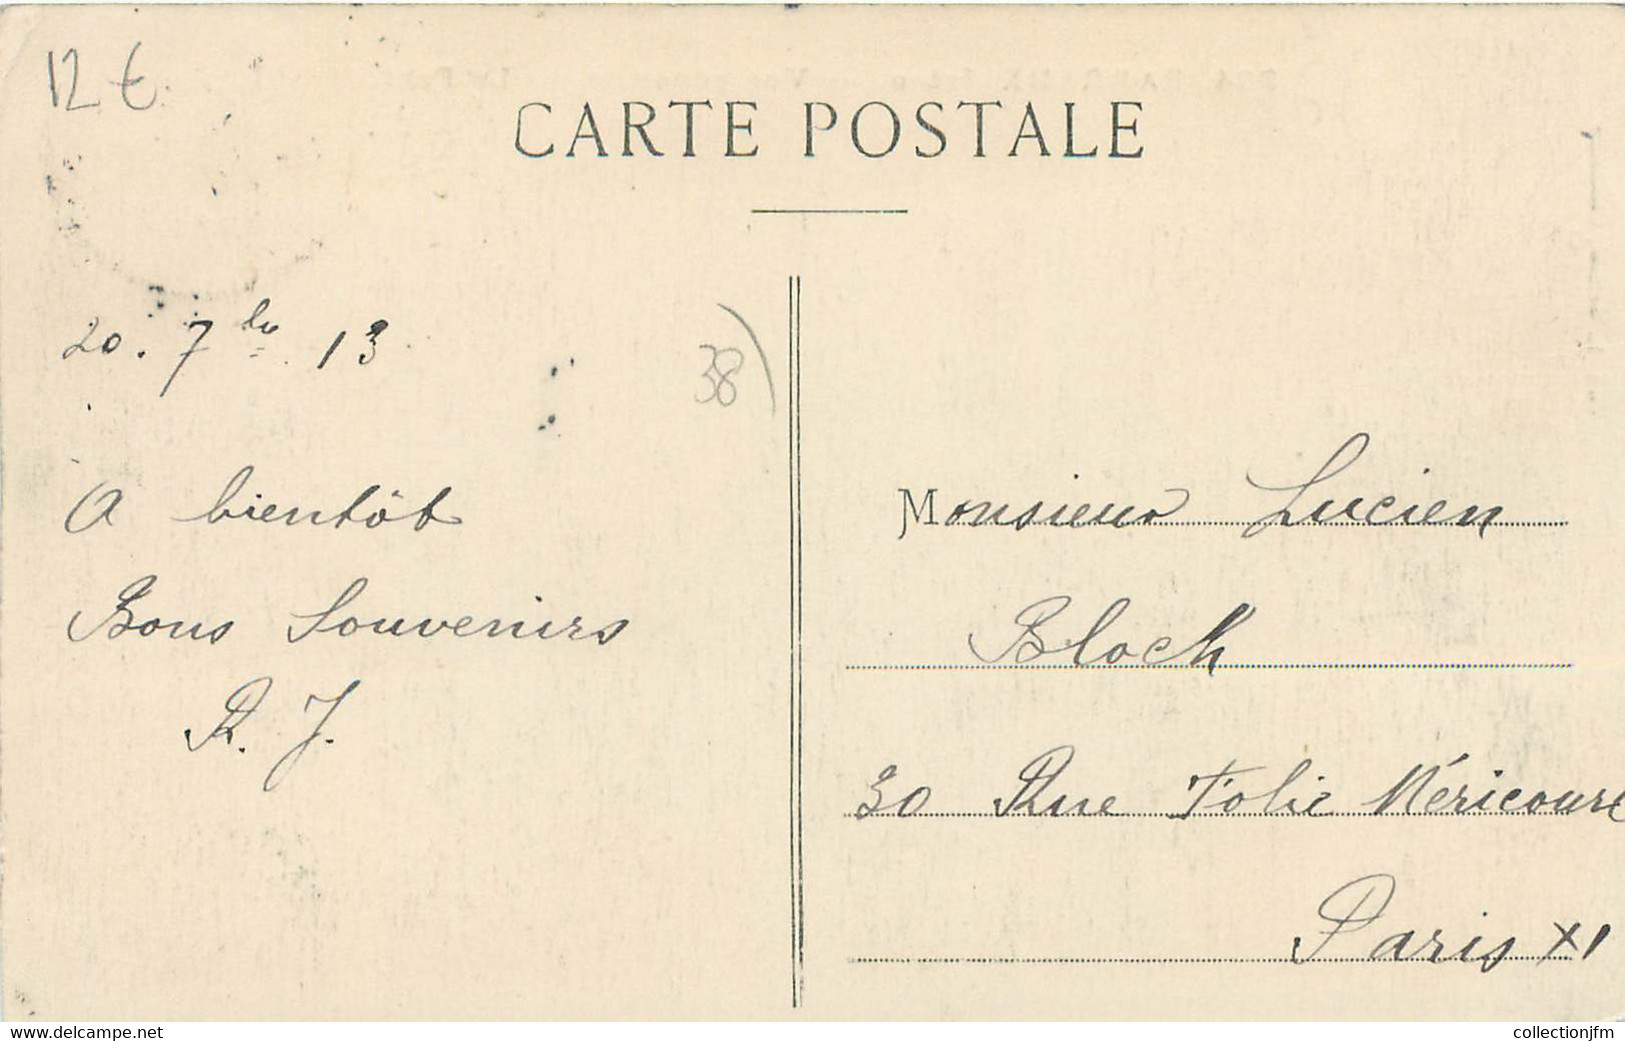 12 €
CARTE POSTALE
20. 7bre 13
38
A bientôt
Bons Souvenirs
R. J.
Monsieur Lucien
Bloch
30 Rue Folie Méricourt
Paris XI
www.delcampe.net
collectionjfm